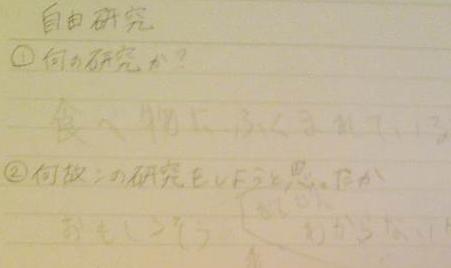 自由研究
①何の研究か?
食べ物にふくまれている
②何故この研究をしようと思ったか
おもしろそう わからない